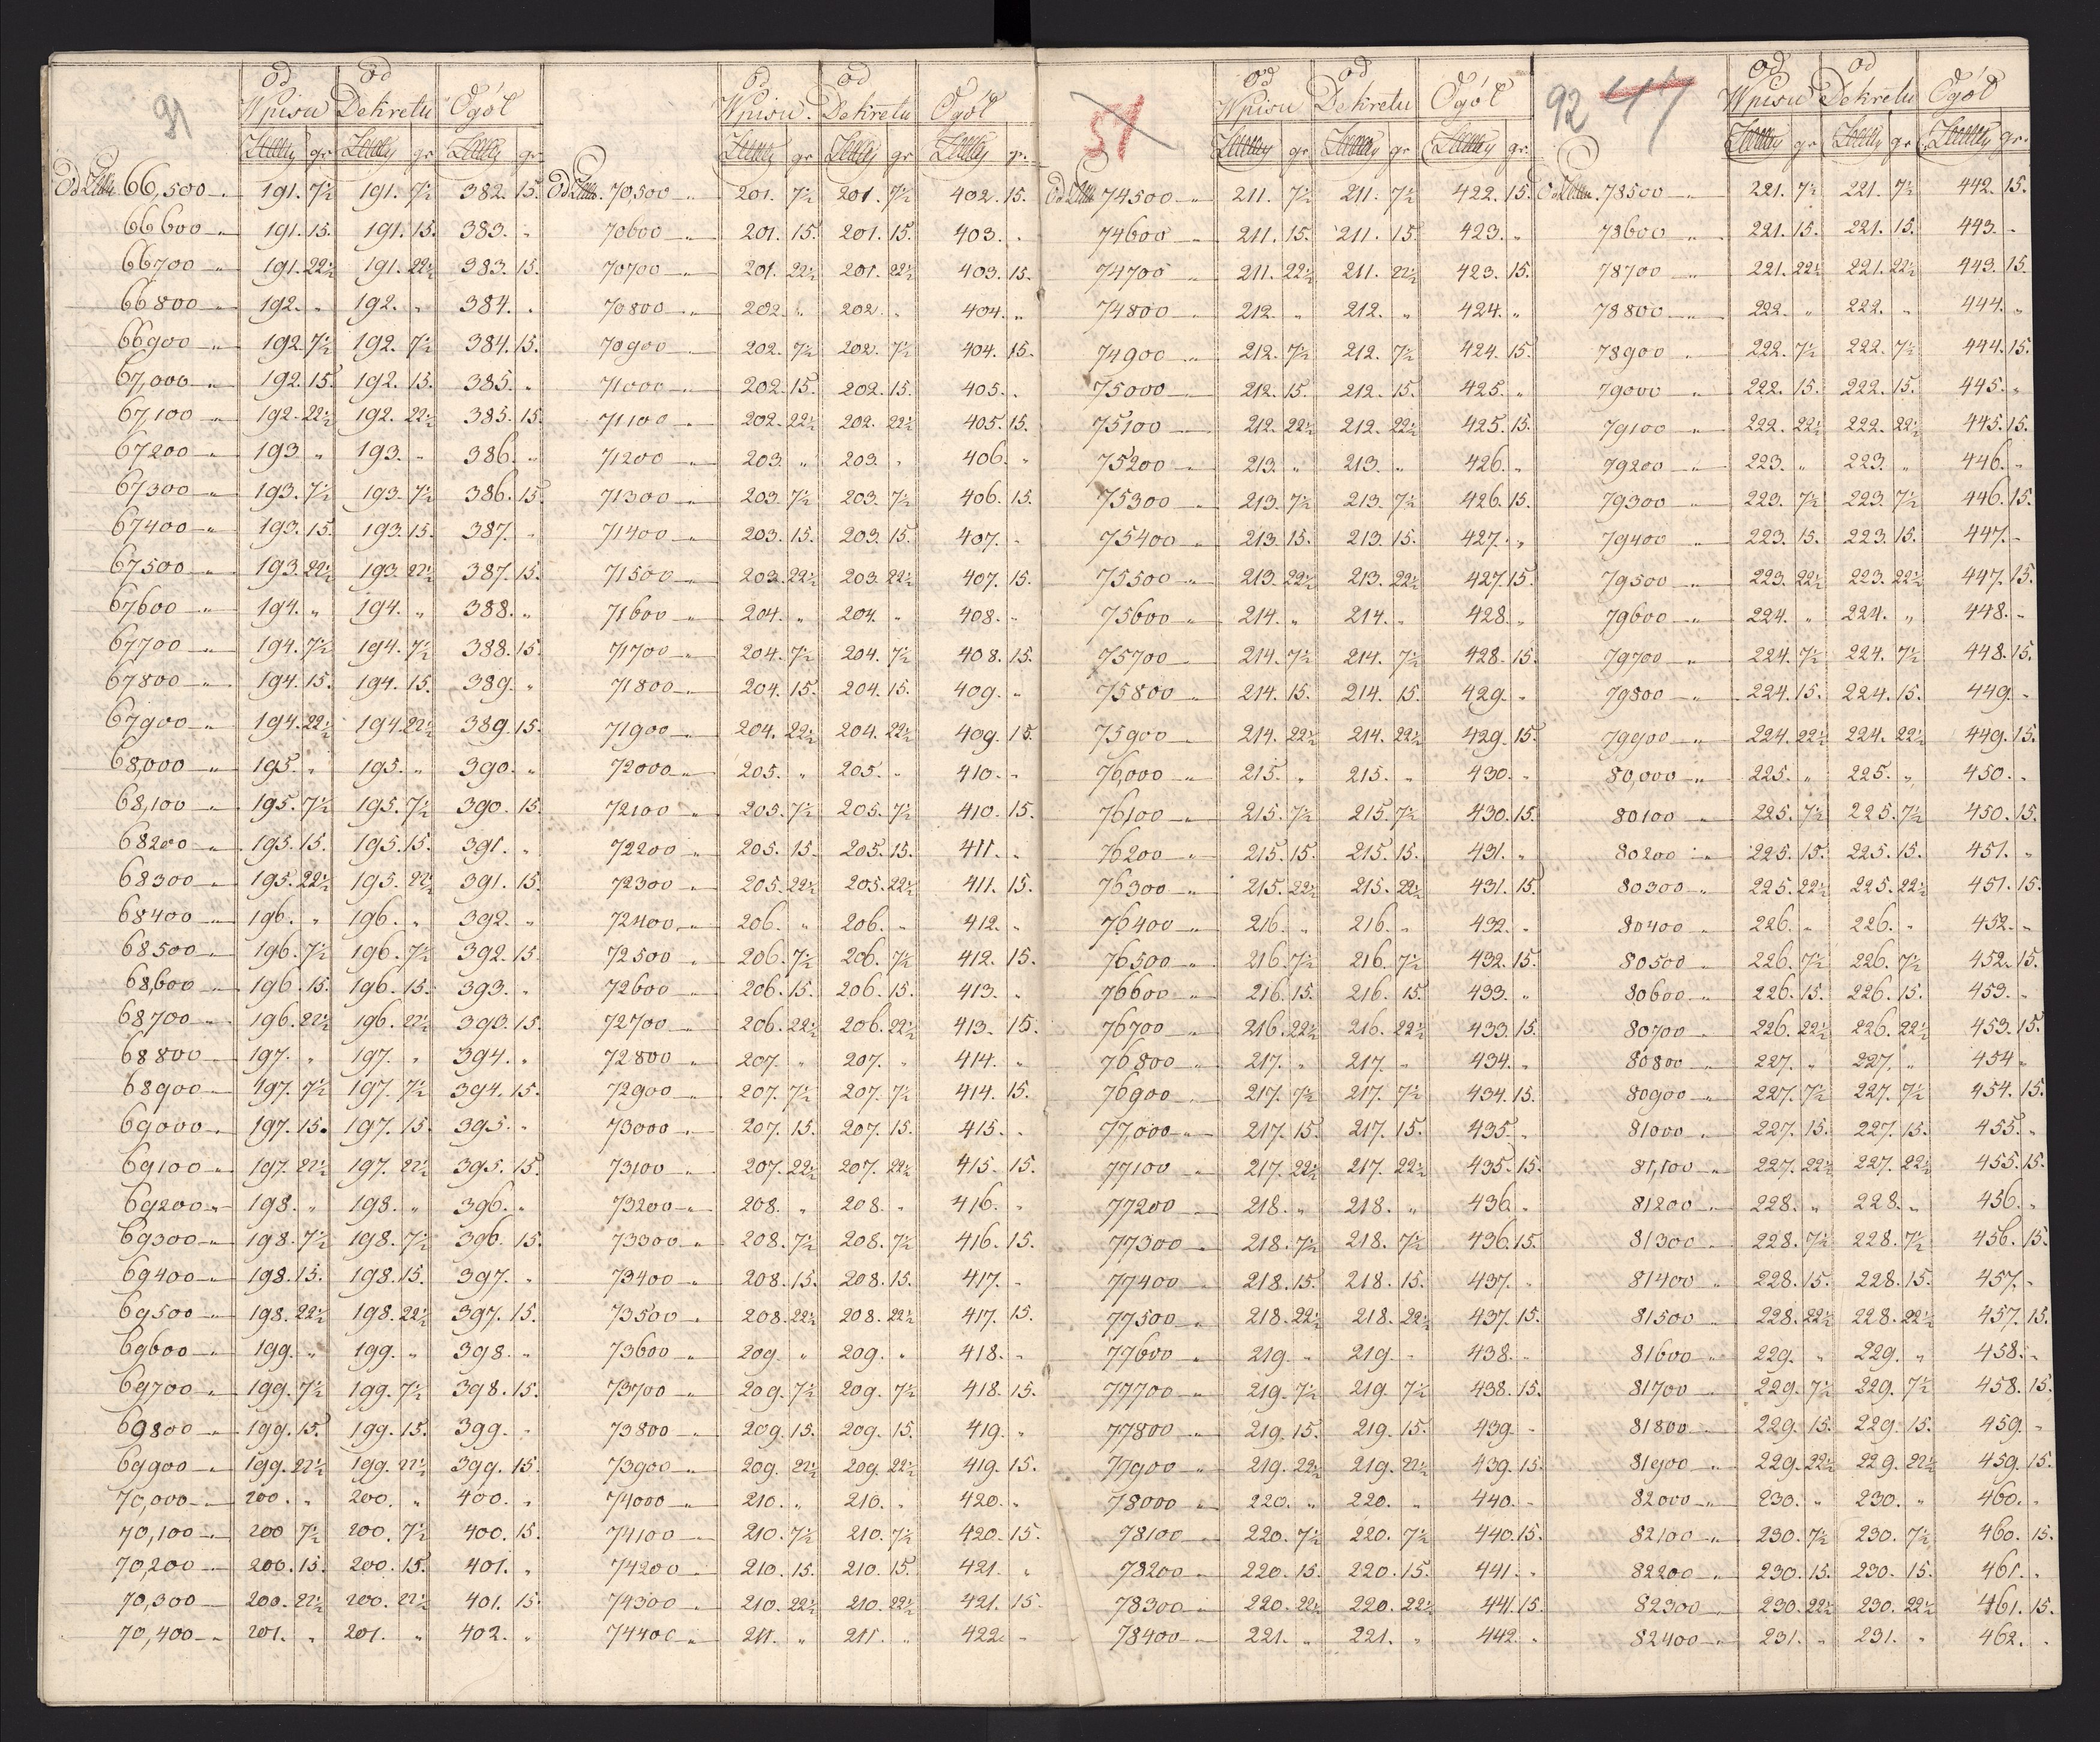 91
od od
Wpisu Dekretu Ogół
Złotty gr Złotty gr Złotty gr
Od Złtt. 66,500 „ 191. 7½ 191. 7½ 382. 15.
66600 „ 191. 15. 191. 15. 383. „
66700 „ 191. 22½ 191. 22½ 383. 15.
66800 „ 192. „ 192. „ 384. „
66900 „ 192. 7½ 192. 7½ 384. 15.
67,000 „ 192. 15. 192. 15. 385. „
67,100 „ 192. 22½ 192. 22½ 385. 15.
67200 „ 193 „ 193. „ 386. „
67300 „ 193. 7½ 193. 7½ 386. 15.
67400 „ 193. 15. 193. 15. 387. „
67500 „ 193. 22½ 193. 22½ 387. 15.
67600 „ 194. „ 194. „ 388. „
67700 „ 194. 7½ 194. 7½ 388. 15.
67800 „ 194. 15. 194. 15. 389. „
67900 „ 194. 22½ 194. 22½ 389. 15.
68,000 „ 195. „ 195. „ 390. „
68,100 „ 195. 7½ 195. 7½ 390. 15.
68200 „ 195. 15. 195. 15. 391. „
68300 „ 195. 22½ 195. 22½ 391. 15.
68400 „ 196. „ 196. „ 392. „
68500 „ 196. 7½ 196. 7½ 392. 15.
68,600 „ 196. 15. 196. 15. 393. „
68700 „ 196. 22½ 196. 22½ 393. 15.
68800 „ 197. „ 197. „ 394. „
68900 „ 197. 7½ 197. 7½ 394. 15.
69000 „ 197. 15. 197. 15. 395. „
69100 „ 197. 22½ 197. 22½ 395. 15.
69200 „ 198. „ 198. „ 396. „
69300 „ 198. 7½ 198. 7½ 396. 15.
69400 „ 198. 15. 198. 15. 397. „
69500 „ 198. 22½ 198. 22½ 397. 15.
69600 „ 199. „ 199. „ 398. „
69700 „ 199. 7½ 199. 7½ 398. 15.
69800 „ 199. 15. 199. 15. 399. „
69900 „ 199. 22½ 199. 22½ 399. 15.
70,000 „ 200. „ 200. „ 400. „
70,100 „ 200 7½ 200. 7½ 400. 15.
70,200 „ 200. 15. 200. 15. 401. „
70,300 „ 200. 22½ 200. 22½ 401. 15.
70,400 „ 201. „ 201. „ 402. „
od od
Wpisu. Dekretu Ogół
Złotty gr Złotty gr Złotty gr.
Od Złtt. 70,500 „ 201. 7½ 201. 7½ 402. 15.
70600 „ 201. 15. 201. 15. 403. „
70700 „ 201. 22½ 201. 22½ 403. 15.
70800 „ 202. „ 202. „ 404. „
70900 „ 202. 7½ 202. 7½ 404. 15.
71000 „ 202. 15. 202. 15. 405. „
71100 „ 202. 22½ 202. 22½ 405. 15.
71200 „ 203. „ 203. „ 406. „
71300 „ 203. 7½ 203. 7½ 406. 15.
71400 „ 203. 15. 203. 15. 407. „
71500 „ 203. 22½ 203. 22½ 407. 15.
71600 „ 204. „ 204. „ 408. „
71700 „ 204. 7½ 204. 7½ 408. 15.
71800 „ 204. 15. 204. 15. 409. „
71900 „ 204. 22½ 204. 22½ 409. 15.
72000 „ 205. „ 205. „ 410. „
72100 „ 205. 7½ 205. 7½ 410. 15.
72200 „ 205. 15. 205. 15. 411. „
72300 „ 205. 22½ 205. 22½ 411. 15.
72400 „ 206. „ 206. „ 412. „
72500 „ 206. 7½ 206. 7½ 412. 15.
72600 „ 206. 15. 206. 15. 413. „
72700 „ 206. 22½ 206. 22½ 413. 15.
72800 „ 207. „ 207. „ 414. „
72900 „ 207. 7½ 207. 7½ 414. 15.
73000 „ 207. 15. 207. 15. 415. „
73100 „ 207. 22½ 207. 22½ 415. 15.
73200 „ 208. „ 208. „ 416. „
73300 „ 208. 7½ 208. 7½ 416. 15.
73400 „ 208. 15. 208. 15. 417. „
73500 „ 208. 22½ 208. 22½ 417. 15.
73600 „ 209. „ 209. „ 418. „
73700 „ 209. 7½ 209. 7½ 418. 15.
73800 „ 209. 15. 209. 15. 419. „
73900 „ 209. 22½ 209. 22½ 419. 15.
74000 „ 210. „ 210. „ 420. „
74100 „ 210. 7½ 210. 7½ 420. 15.
74200 „ 210. 15. 210. 15. 421. „
74300 „ 210. 22½ 210. 22½ 421. 15.
74400 „ 211. „ 211. „ 422. „
51
od od
Wpisu Dekretu Ogół
Złotty gr Złotty gr Złotty gr.
Od Złtt 74500 „ 211. 7½ 211. 7½ 422. 15.
74600 „ 211. 15. 211. 15. 423. „
74700 „ 211. 22½ 211. 22½ 423. 15.
74800 „ 212. „ 212. „ 424. „
74900 „ 212. 7½ 212. 7½ 424. 15.
75000 „ 212. 15. 212. 15. 425. „
75100 „ 212. 22½ 212. 22½ 425. 15.
75200 „ 213. „ 213. „ 426. „
75300 „ 213. 7½ 213. 7½ 426. 15.
75400 „ 213. 15. 213. 15. 427. „
75500 „ 213. 22½ 213. 22½ 427. 15.
75600 „ 214. „ 214. „ 428. „
75700 „ 214. 7½ 214. 7½ 428. 15.
75800 „ 214. 15. 214. 15. 429. „
75900 „ 214. 22½ 214. 22½ 429. 15.
76,000 „ 215. „ 215. „ 430. „
76100 „ 215. 7½ 215. 7½ 430. 15.
76200 „ 215. 15. 215. 15. 431. „
76300 „ 215. 22½ 215. 22½ 431. 15.
76400 „ 216. „ 216. „ 432. „
76500 „ 216. 7½ 216. 7½ 432. 15.
76600 „ 216. 15. 216. 15. 433. „
76700 „ 216. 22½ 216. 22½ 433. 15.
76800 „ 217. „ 217. „ 434. „
76900 „ 217. 7½ 217. 7½ 434. 15.
77,000 „ 217. 15. 217. 15. 435. „
77100 „ 217. 22½ 217. 22½ 435. 15.
77200 „ 218. „ 218. „ 436. „
77300 „ 218. 7½ 218. 7½ 436. 15.
77400 „ 218. 15. 218. 15. 437. „
77500 „ 218. 22½ 218. 22½ 437. 15.
77600 „ 219. „ 219. „ 438. „
77700 „ 219. 7½ 219. 7½ 438. 15.
77800 „ 219. 15. 219. 15. 439. „
77900 „ 219. 22½ 219. 22½ 439. 15.
78000 „ 220. „ 220. „ 440. „
78100 „ 220. 7½ 220. 7½ 440. 15.
78200 „ 220. 15. 220. 15. 441. „
78300 „ 220. 22½ 220. 22½ 441. 15.
78400 „ 221. „ 221. „ 442. „
92 47
od od
Wpisu Dekretu Ogół
Złotty gr Złotty gr Złotty gr.
Od Złtt. 78500 „ 221. 7½ 221. 7½ 442. 15.
78600 „ 221. 15. 221. 15. 443. „
78700 „ 221. 22½ 221. 22½ 443. 15.
78800 „ 222. „ 222. „ 444. „
78900 „ 222. 7½ 222. 7½ 444. 15.
79000 „ 222. 15. 222. 15. 445. „
79100 „ 222. 22½ 222. 22½ 445. 15.
79200 „ 223. „ 223. „ 446. „
79300 „ 223. 7½ 223. 7½ 446. 15.
79400 „ 223. 15. 223. 15. 447. „
79500 „ 223. 22½ 223. 22½ 447. 15.
79600 „ 224. „ 224. „ 448. „
79700 „ 224. 7½ 224. 7½ 448. 15.
79800 „ 224. 15. 224. 15. 449. „
79900 „ 224. 22½ 224. 22½ 449. 15.
80,000 „ 225. „ 225. „ 450. „
80100 „ 225. 7½ 225. 7½ 450. 15.
80200 „ 225. 15. 225. 15. 451. „
80300 „ 225. 22½ 225. 22½ 451. 15.
80400 „ 226. „ 226. „ 452. „
80500 „ 226. 7½ 226. 7½ 452. 15.
80600 „ 226. 15. 226. 15. 453. „
80700 „ 226. 22½ 226. 22½ 453. 15.
80800 „ 227. „ 227. „ 454 „
80900 „ 227. 7½ 227. 7½ 454. 15.
81000 „ 227. 15. 227. 15. 455. „
81,100 „ 227. 22½ 227. 22½ 455. 15.
81200 „ 228. „ 228. „ 456. „
81300 „ 228. 7½ 228. 7½ 456. 15.
81400 „ 228. 15. 228. 15. 457. „
81500 „ 228. 22½ 228. 22½ 457. 15.
81600 „ 229. „ 229. „ 458. „
81700 „ 229. 7½ 229. 7½ 458. 15.
81800 „ 229. 15. 229. 15. 459. „
81900 „ 229. 22½ 229. 22½ 459. 15.
82000 „ 230. „ 230. „ 460. „
82100 „ 230. 7½ 230. 7½ 460. 15.
82200 „ 230. 15. 230. 15. 461. „
82300 „ 230. 22½ 230. 22½ 461. 15.
82400 „ 231. „ 231. „ 462. „